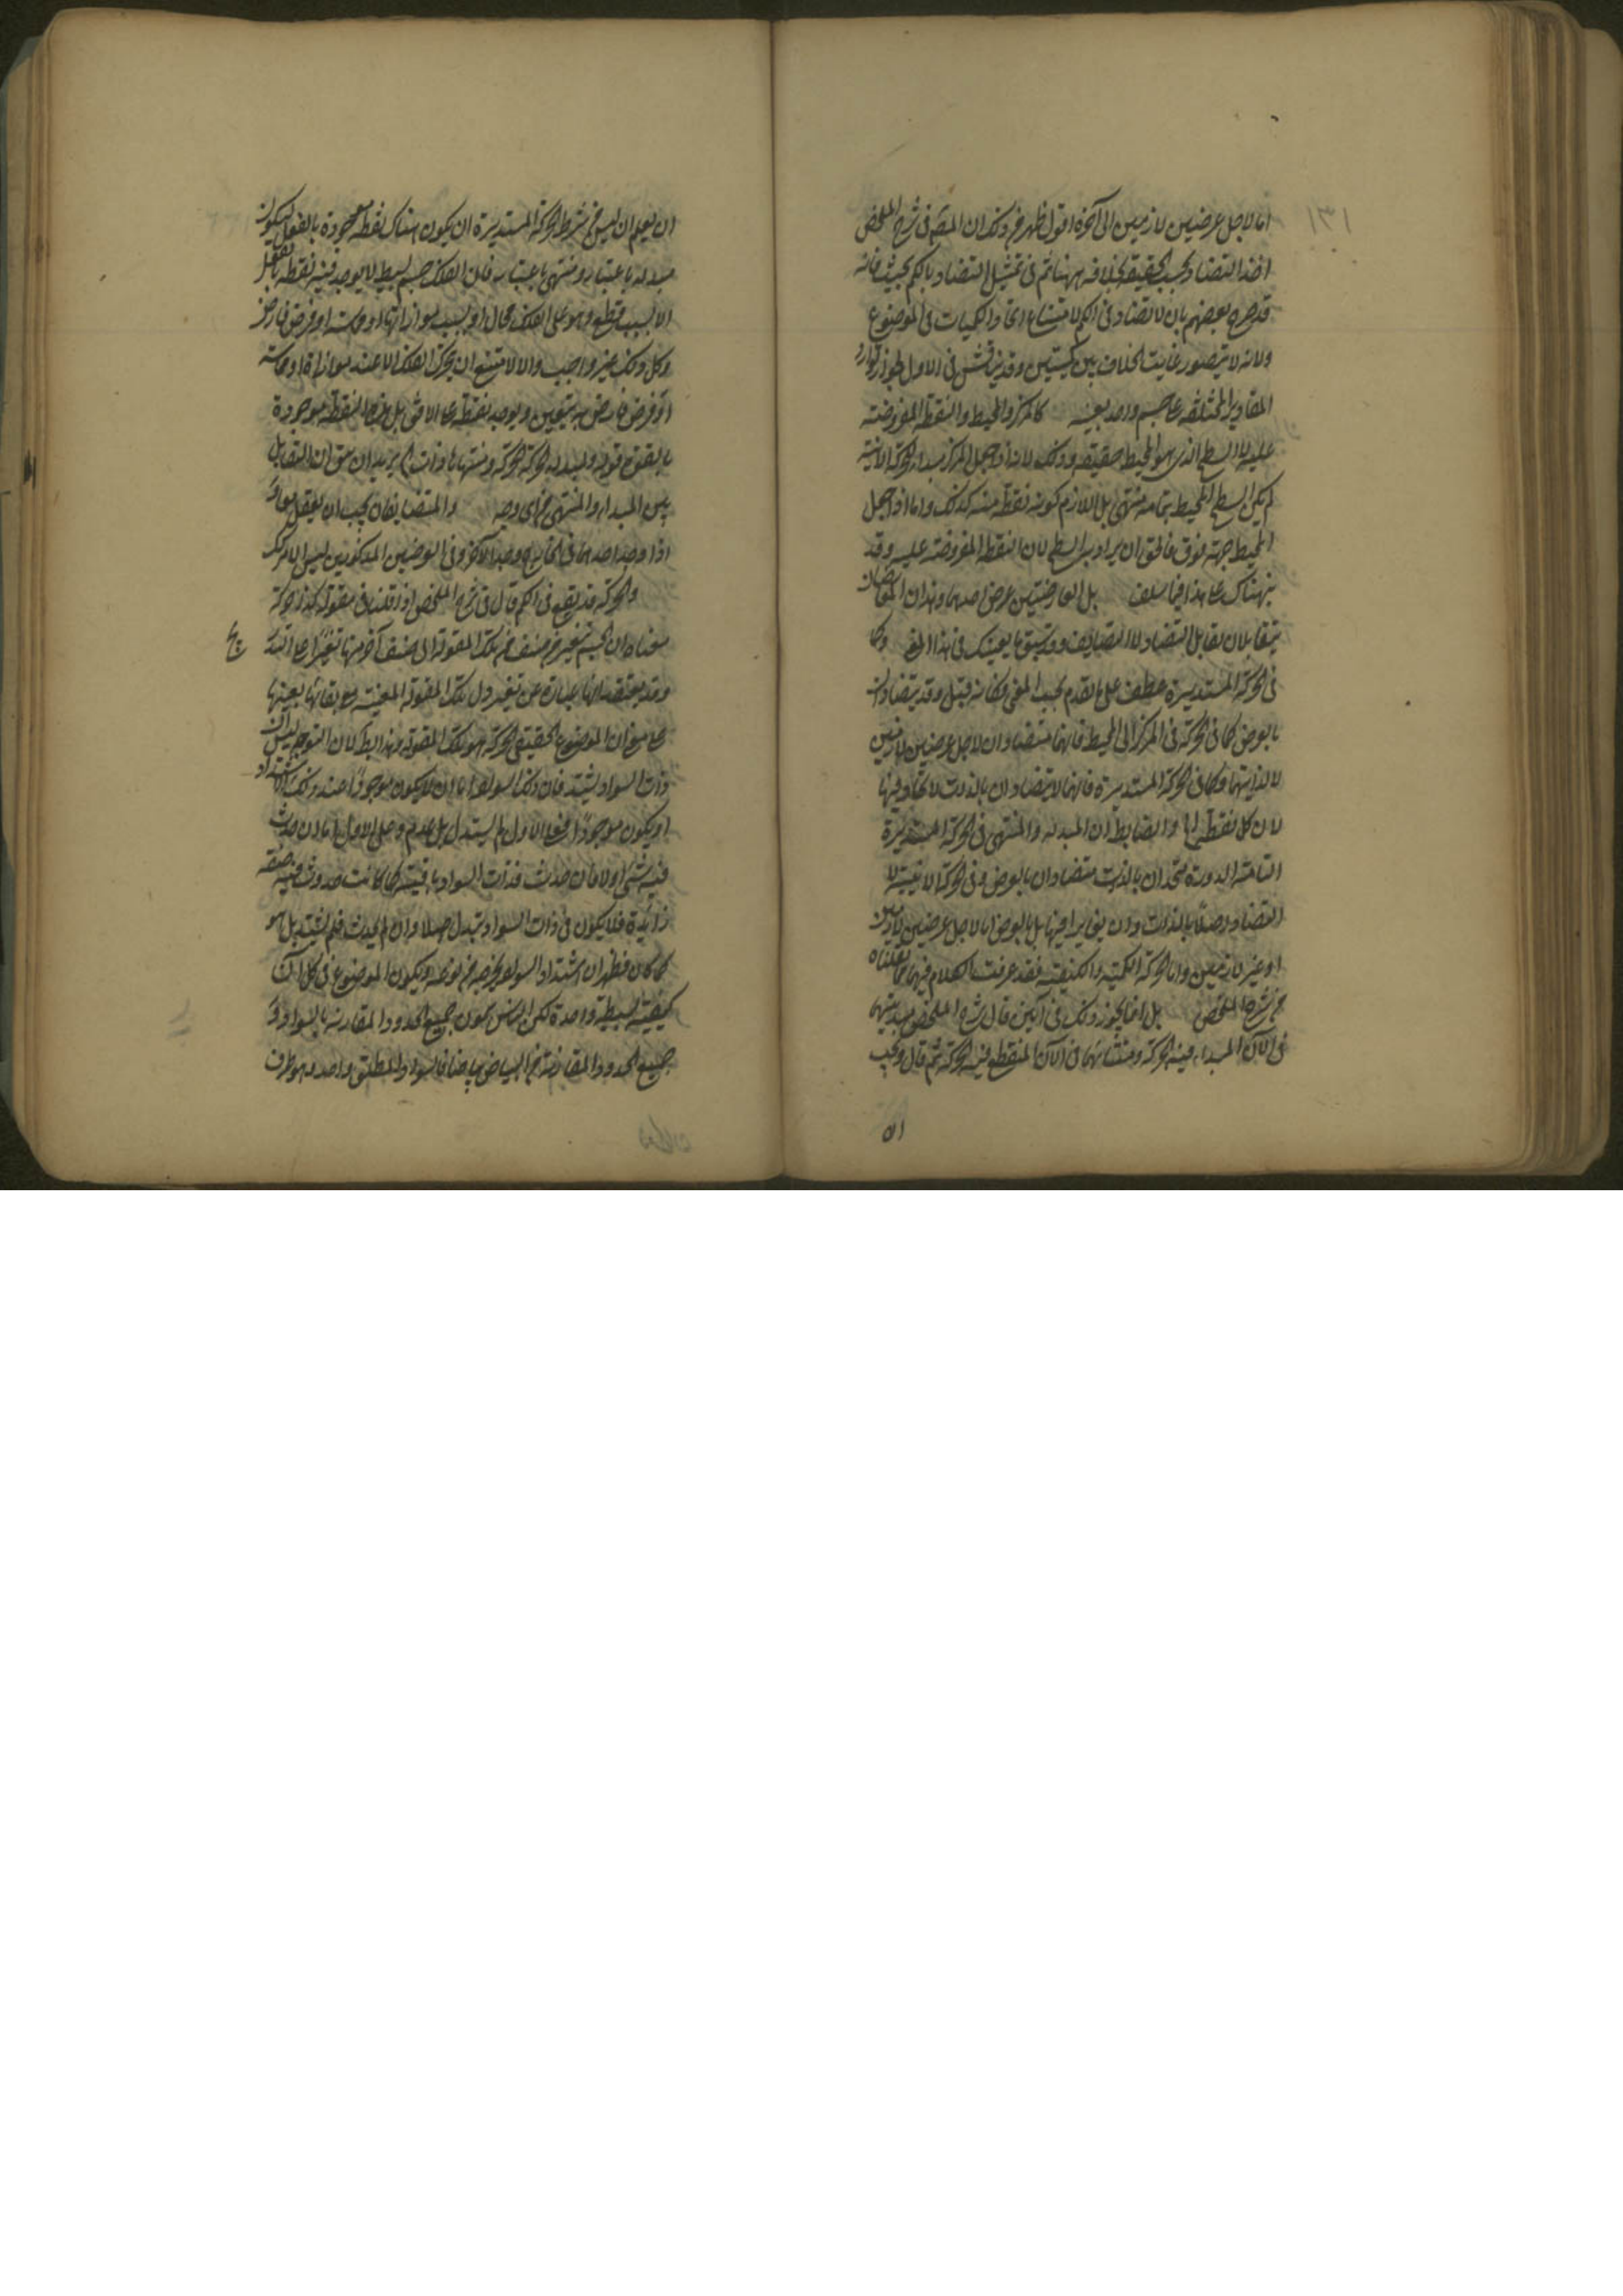 ١٣١
اما لاجل عرضين لازمين الى آخره اقول ظهر من ذلك ان المصنف في شرح الملخص
اخذ التضاد بحسب الحقيقة بخلافه ههنا ثم في تمثيل التضاد بالكم بحث فانه
قد صرح بعضهم بان لا تضاد في الكم لامتناع اتحاد الكميات في الموضوع
ولانه لا يتصور غايت الخلاف بين كميتين وقد يناقش في الاول لجواز توارد
المقادير المختلفة على جسم واحد بعينه كالمركز والمحيط والنقطة المفروضة
عليه لا السطح الذي هو المحيط حقيقة وذلك لانه اذا جعل المركز مبداء الحركة الاينية
لم يكن السطح المحيط بتمامه منتهى بل اللازم كونه نقطة منه كذلك واما اذا جعل
المحيط جهة فوق فالحق ان يراد به السطح لان النقطة المفروضة عليه وقد
نبهناك على هذا فيما سلف بل العارضيتين عرض احدهما وهذان العارضان
يتقابلان تقابل التضاد لا التضايف وقد سبق ما يعينك في هذا المعنى وكما
في الحركة المستديرة عطف على ما تقدم بحسب المعنى وكانه قيل وقد يتضادان
بالعرض كما في الحركة من المركز الى المحيط فانهما متضادان لاجل عرضين لازمين
لا لذاتيهما وكما في الحركة المستديرة فانهما لا يتضادان بالذات لاتحاد فيها
لان كل نقطة الخ والضابط ان المبدء والمنتهى في الحركة المستديرة
التامة الدورة متحدان بالذات متضادان بالعرض وفي الحركة الاينية لا
تضاد اصلا بالذات وان تغايرا فيها بل بالعرض اما لاجل عرضين لازمين
او غير لازمين واما الحركة الكمية والكيفية فقد عرفت الكلام فيهما مما نقلناه
من شرح الملخص بل انما يجوز ذلك في آنين قال في شرح الملخص مبدئيتها
في الآن المبداء فيه الحركة ومنتهائيتها في الآن المنقطع فيه الحركة ثم قال ويجب
ان
ان يعلم ان ليس من شرط الحركة المستديرة ان يكون هناك نقطة موجودة بالفعل ليكون
مبدء باعتبار ومنتهى باعتبار فان الفلك جسم بسيط لا يوجد فيه نقطة بالفعل
الا بسبب قطع وهو على الفلك محال او بسبب موازاة او مماسة او فرض فارض
وكل ذلك غير واجب والا لامتنع ان يتحرك الفلك الا عند موازاة او مماسة
او فرض فارض به يتعين ويوجد نقطة على الافق بل هذه النقطة موجودة
بالقوة قوله ولمبدء الحركة الحركة ومنتهاها ذات الخ يريد ان حق ان التقابل
بين المبداء والمنتهى من اي وجه والمتضايفان يجب ان يعقل معا و
اذا وجد احدهما في الخارج وجد الآخر وفي العرضين المذكورين ليس الامر كذلك
والحركة قد يقع في الكم قال في شرح الملخص اذا قلنا في مقولة كذا حركة
معناه ان الجسم يتغير من صنف من تلك المقولة الى صنف آخر منها تغيرا على التدريج
وقد يعتقد انها عبارة عن تغير دل تلك المقولة المعينة مع بقائها بعينها
على معنى ان الموضوع الحقيقي للحركة هو تلك المقولة وهذا باطل لان التوجه ليس ان
ذات السواد يشتد فان ذلك السواد اما ان لا يكون موجودا عند ذلك الاشتداد
او يكون موجودا فعلى الاول لم يشتد بل عدم وعلى الاول اما ان حدث
فيه شئ او لا فان حدث فذات السواد باقية كما كانت حدوث فيه صفة
زائدة فلا يكون في ذات السواد تبدل اصلا وان لم يحدث فلم يشتد بل هو
كما كان فظهر ان اشتداد السواد يخرجه من نوعه ويكون الموضوع في كل آن
كيفية بسيطة واحدة لكن الناس يسمون جميع الحدود المقاربة بالسواد سوادا و
جميع الحدود المقاربة من البياض بياضا فالسواد المطلق واحد وهو طرف